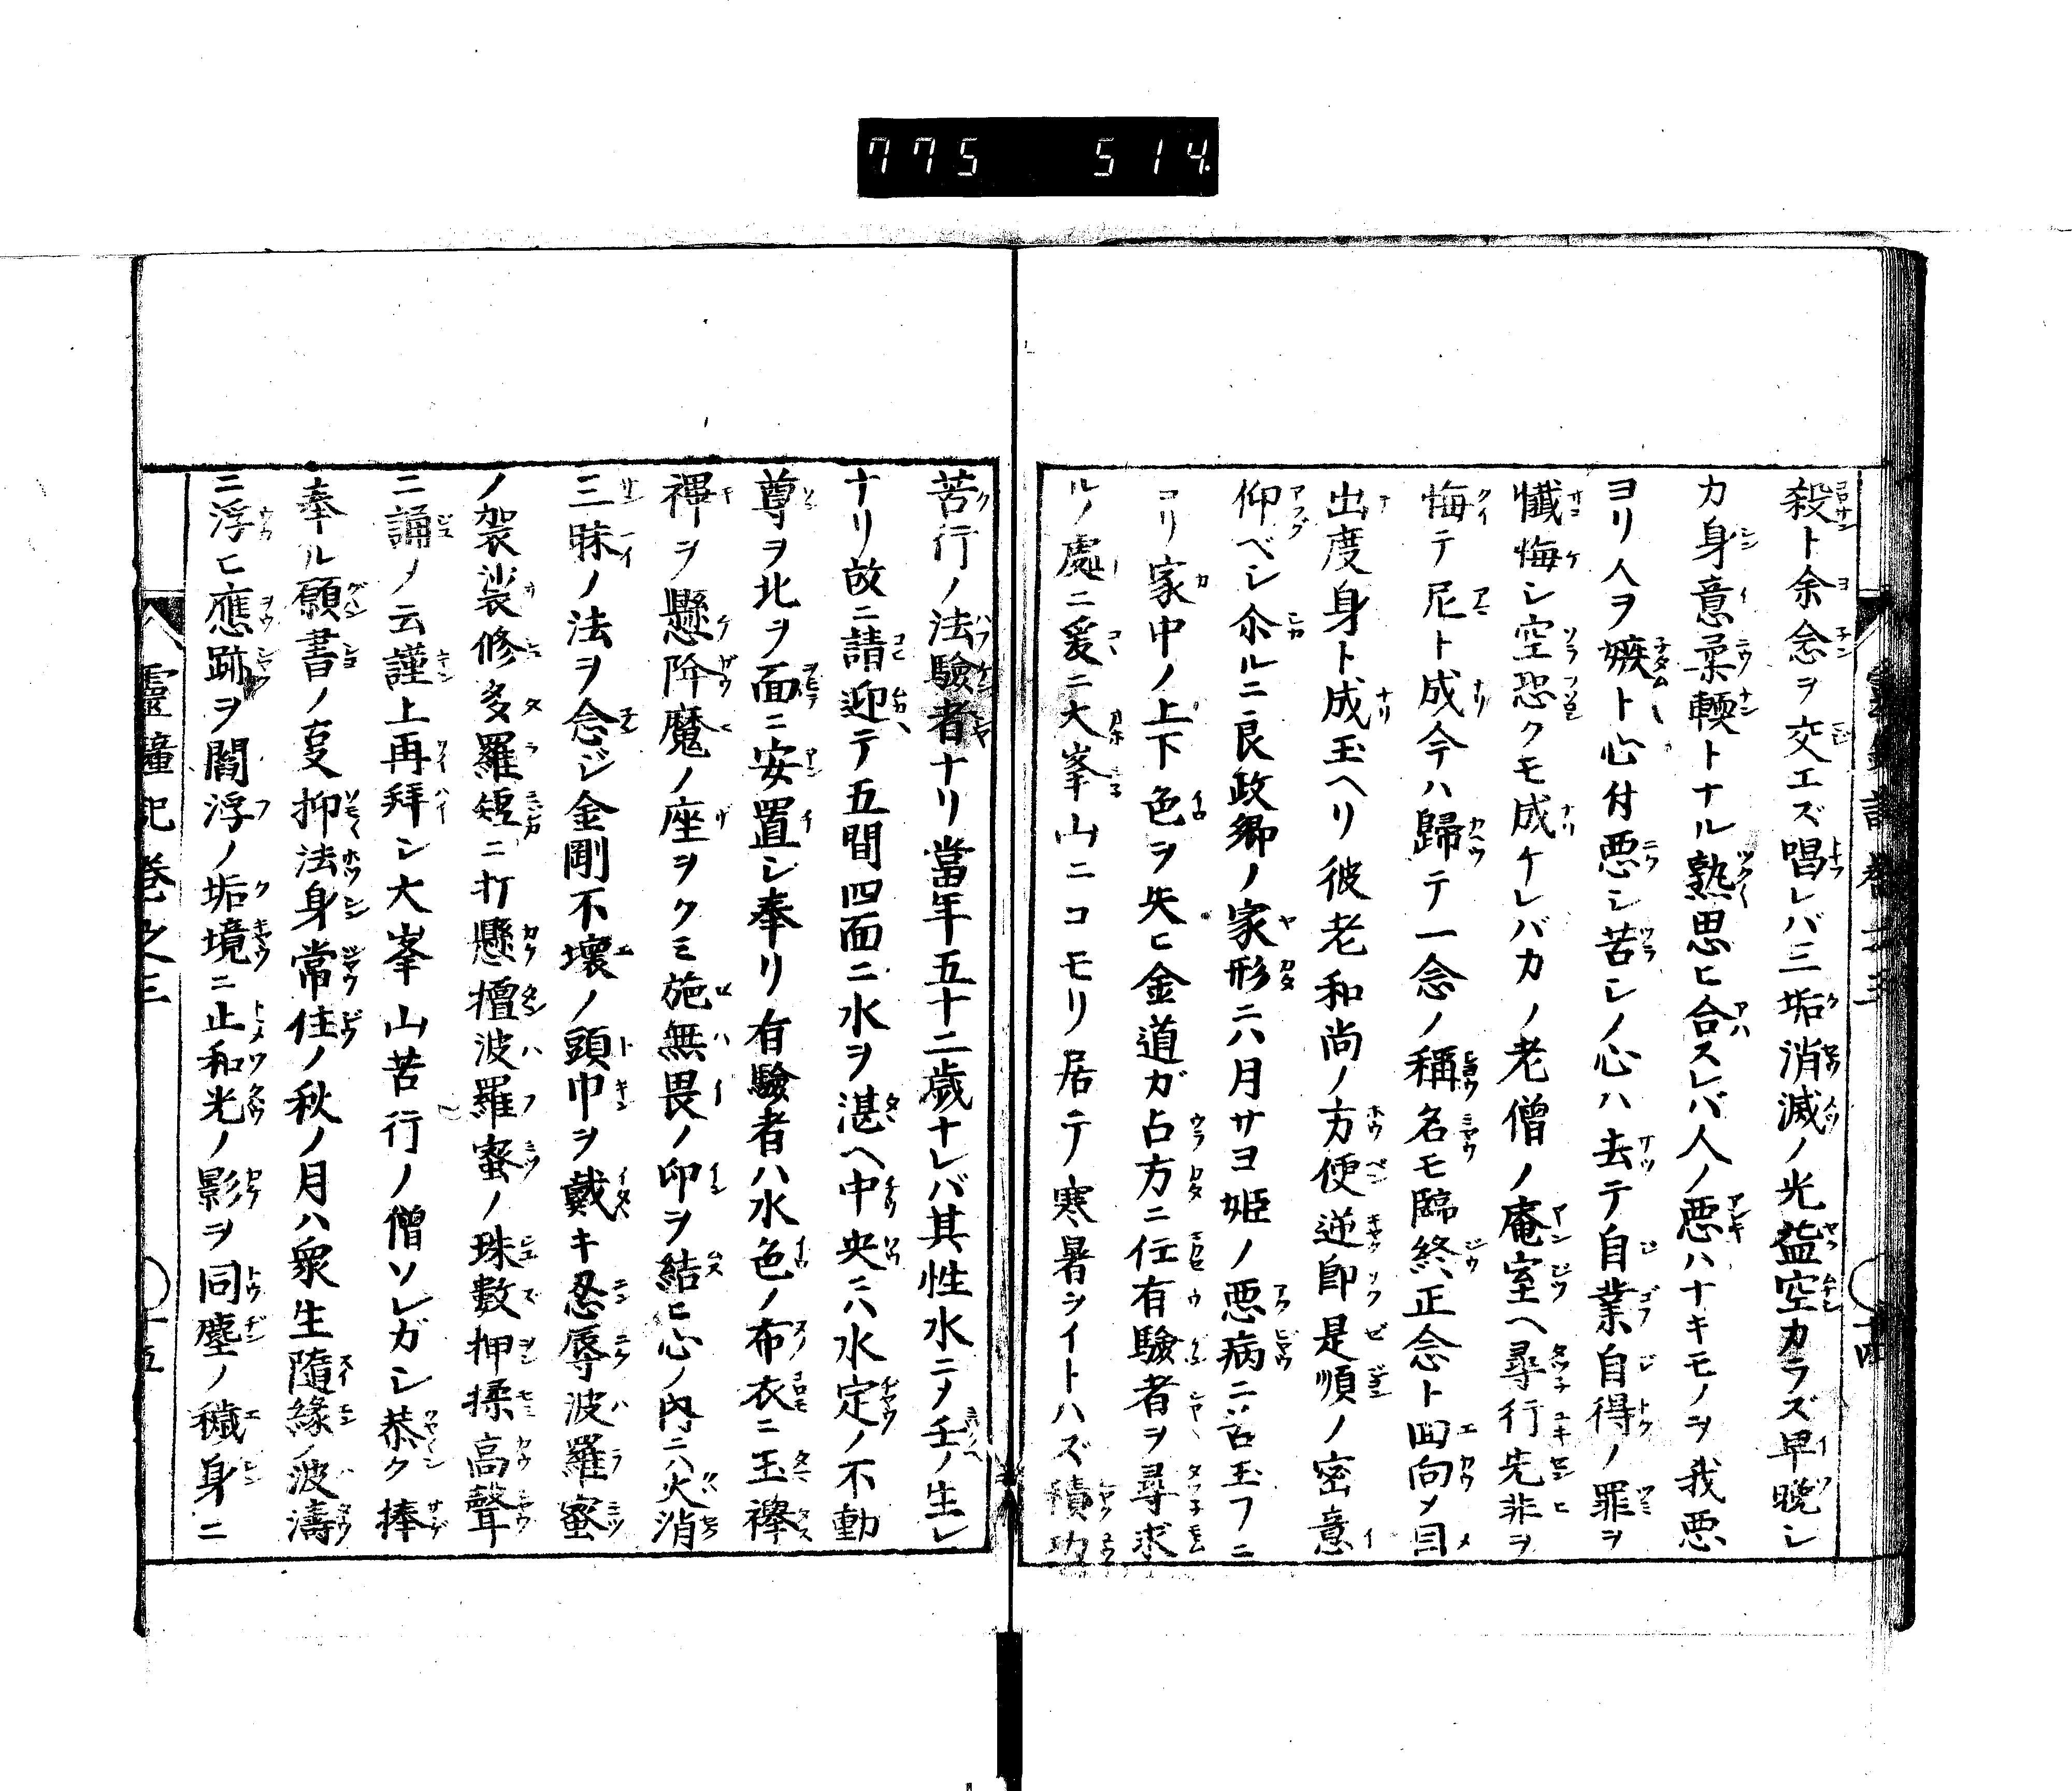 775 514
殺ト余念ヲ交エズ唱レバ三垢消滅ノ光益空カラズ早晩シ
カ身意柔輭トナル熟思ヒ合スレバ人ノ悪ハナキモノヲ我悪
ヨリ人ヲ嫉ト心付悪シ苦シノ心ハ去テ自業自得ノ罪ヲ
懺悔シ空恐クモ成ケレバカノ老僧ノ庵室ヘ尋行先非ヲ
悔テ尼ト成今ハ歸テ一念ノ稱名モ臨終正念ト回向メ目
出度身ト成玉ヘリ彼老和尚ノ方便逆即是順ノ密意
仰ベシ尒ルニ良政卿ノ家形ニハ月サヨ姫ノ悪病ニ苦玉フニ
ヨリ家中ノ上下色ヲ失ヒ金道ガ占方ニ任有驗者ヲ尋求
ルノ處ニ爰ニ大峯山ニコモリ居テ寒暑ヲイトハズ積功
苦行ノ法驗者ナリ當年五十二歳ナレバ其性水ニノ壬ノ生レ
ナリ故ニ請迎テ五間四面ニ水ヲ湛ヘ中央ニハ水定ノ不動
尊ヲ北ヲ面ニ安置シ奉リ有驗者ハ水色ノ布衣ニ玉襷
襅ヲ懸降魔ノ座ヲクミ施無畏ノ印ヲ結ヒ心ノ内ニハ火消
三昧ノ法ヲ念ジ金剛不壞ノ頭巾ヲ戴キ忍辱波羅蜜
ノ袈裟修多羅短ニ打懸擅波羅蜜ノ珠數押揉高聲
ニ誦ノ云謹上再拜シ大峯山苦行ノ僧ソレガシ恭ク捧
奉ル願書ノ㕝抑法身常住ノ秋ノ月ハ衆生隨緣ノ波濤
ニ浮ヒ應跡ヲ閻浮ノ垢境ニ止和光ノ影ヲ同塵ノ穢身ニ
靈瞳記巻之三 十五